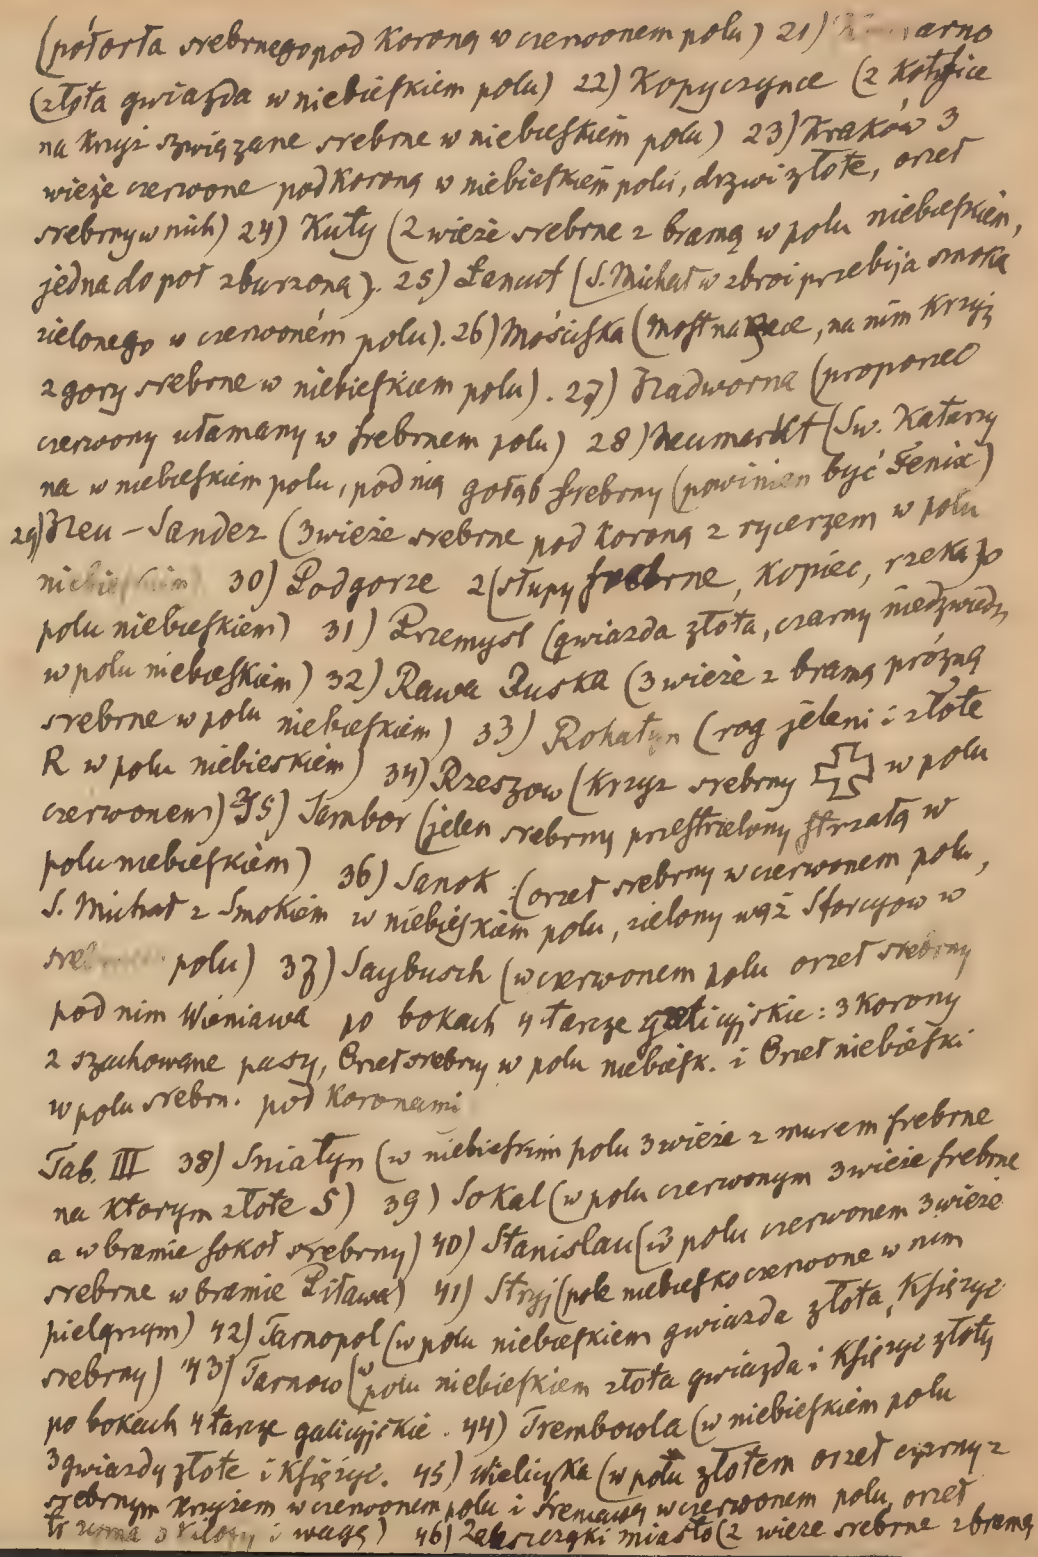 (półorła srebrnego pod Koroną w czerwonem polu) 21) arno
(złota gwiazda w niebieskiem polu) 22) Kopyczynce (2 Kotfice
na Krzyż związane srebrne w niebieskiem polu) 23) Kraków 3
wieże czerwone pod Koroną w niebieskiem polu, drzwi złote, orzeł
srebrny w nich) 24) Kuty (2 wieże srebrne z bramą w polu niebieskiem,
jedna do poł zburzona). 25) Łancut (S. Michał w zbroi przebija smoka
zielonego w czerwoném polu). 26) Mościska (Most na Rece, na nim Krzyż
z gory srebrne w niebieskiem polu). 27) Nadworna (proporzec
czerwony ułamany w srebrnem polu) 28) Neumarkt (Św. Katarzy
na w niebieskiem polu, pod nią gołąb srebrny (powinien być Fenix)
29) Neu-Sandez (3 wieże srebrne pod Koroną z rycerzem w polu
niebieskim) 30) Podgorze 2 (słupy srebrne, Kopiec, rzeka) w
polu niebieskiem) 31) Przemysl (gwiazda złota, czarny niedzwiedz
w polu niebieskiem) 32) Rawa Ruska (3 wieże z bramą próżną
srebrne w polu niebieskiem) 33) Rohatyn (rog jeleni i złote
R w polu niebieskiem) 34) Rzeszow (Krzyz srebrny w polu
czerwonem) 35) Sambor (jelen srebrny przestrzelony strzałą w
polu niebieskiem) 36) Sanok (orzeł srebrny w czerwonem polu,
S. Michał z Smokiem w niebieskiem polu, zielony wąż Sforcyow w
polu) 37) Saybusch (w czerwonem polu orzeł srebrny
pod nim Wieniawa po bokach 4 tarcze galicyjskie: 3 Korony
2 szachowane pasy, Orzeł srebrny w polu niebiesk. i Orzeł niebieski
w polu srebrn. pod Koronami
Tab. III 38) Sniatyn (w niebieskim polu 3 wieże z murem srebrne
na Ktorym złote S) 39) Sokal (w polu czerwonym 3 wieże srebrne
a w bramie sokoł srebrny) 40) Stanislau (w polu czerwonem 3 wieże
srebrne w bramie Piława) 41) Stryj (pole niebiesko czerwone w nim
pielgrzym) 42) Tarnopol (w polu niebieskiem gwiazda złota, Księzyc
srebrny) 43) Tarnow (w polu niebieskiem złota gwiazda i Księzyc złoty
po bokach 4 tarcze galicyjskie. 44) Trembowla (w niebieskiem polu
3 gwiazdy złote i Księzyc. 45) Wieliczka (w polu złotem orzeł czarny z
srebrnym Krzyżem w czerwonem polu i Sreniawą w czerwonem polu, orzeł
trzyma i wagę) 46) Zaleszczyki miasto (2 wieze srebrne z bramą